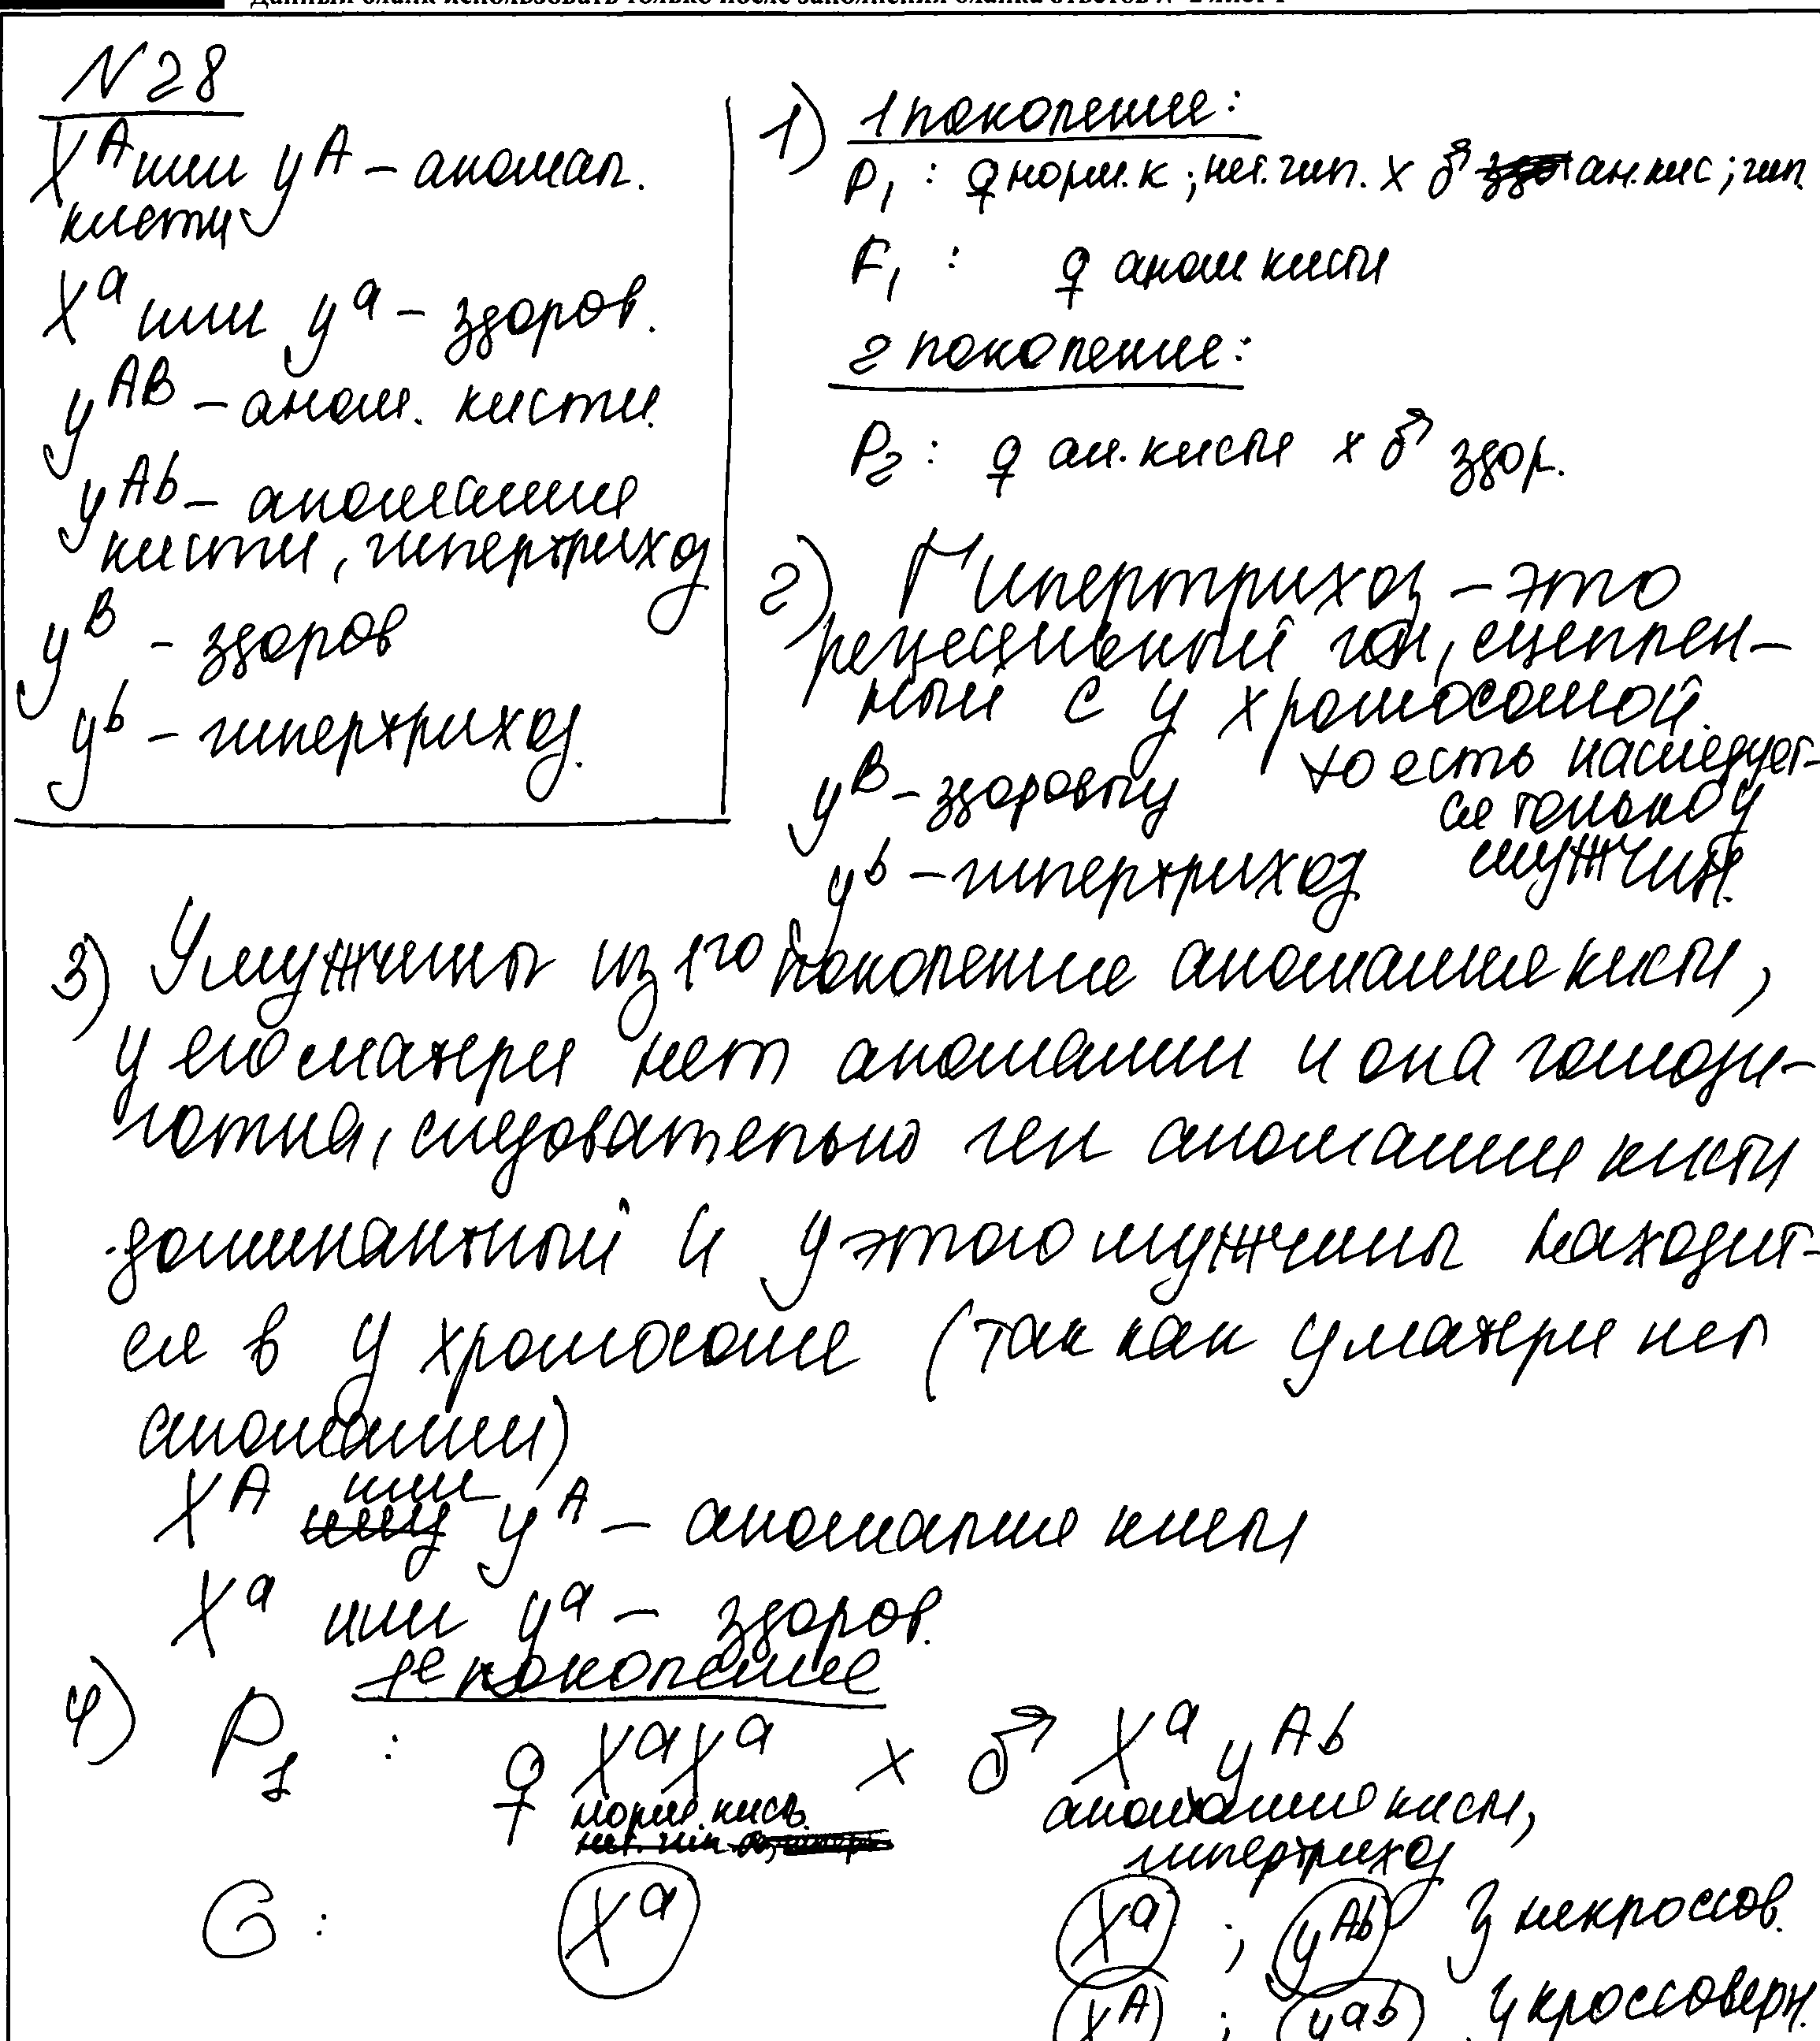 Данный бланк использовать только после заполнения бланка ответов № 2 лист 1
N 28
X^A или y^A – аномал.
кисти
X^a или y^a – здоров.
y^AB – аном. кисти.
y^Ab – аномалия
кисти, гипертрихоз
y^B – здоров
y^b – гипертрихоз.
1) 1 поколение:
P1 : ♀ норм. к ; нет. гип. x ♂ ан. кис ; гип.
F1 : ♀ аном кисти
2 поколение:
P2 : ♀ ан. кисти x ♂ здор.
2) Гипертрихоз – это
рецессивный ген, сцеплен–
ный с y хромосомой.
то есть наследует–
ся только у
мужчин.
y^B – здоровы
y^b – гипертрихоз
3) У мужчины из 1го поколения аномалия кисти,
у его матери нет аномалии и она гомози–
готна, следовательно ген аномалии кисти
доминантный и у этого мужчины находит–
ся в y хромосоме (так как у матери нет
аномалии)
X^A или y^A – аномалия кисти
X^a или y^a – здоров.
4) 1е поколение
P1 : ♀ X^aX^a x ♂ X^a y^Ab
норм. кисть аномалия кисти,
гипертрихоз
G : X^a X^a ; y^Ab } некроссов.
X^A ; y^ab } кроссоверн.